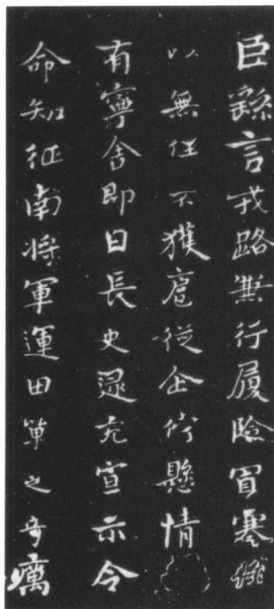 臣繇言戎路兼行履險冒寒
以無任不獲扈從企佇懸情
有寧舍即日長史逯充宣示令
命知征南將軍運田單之奇厲